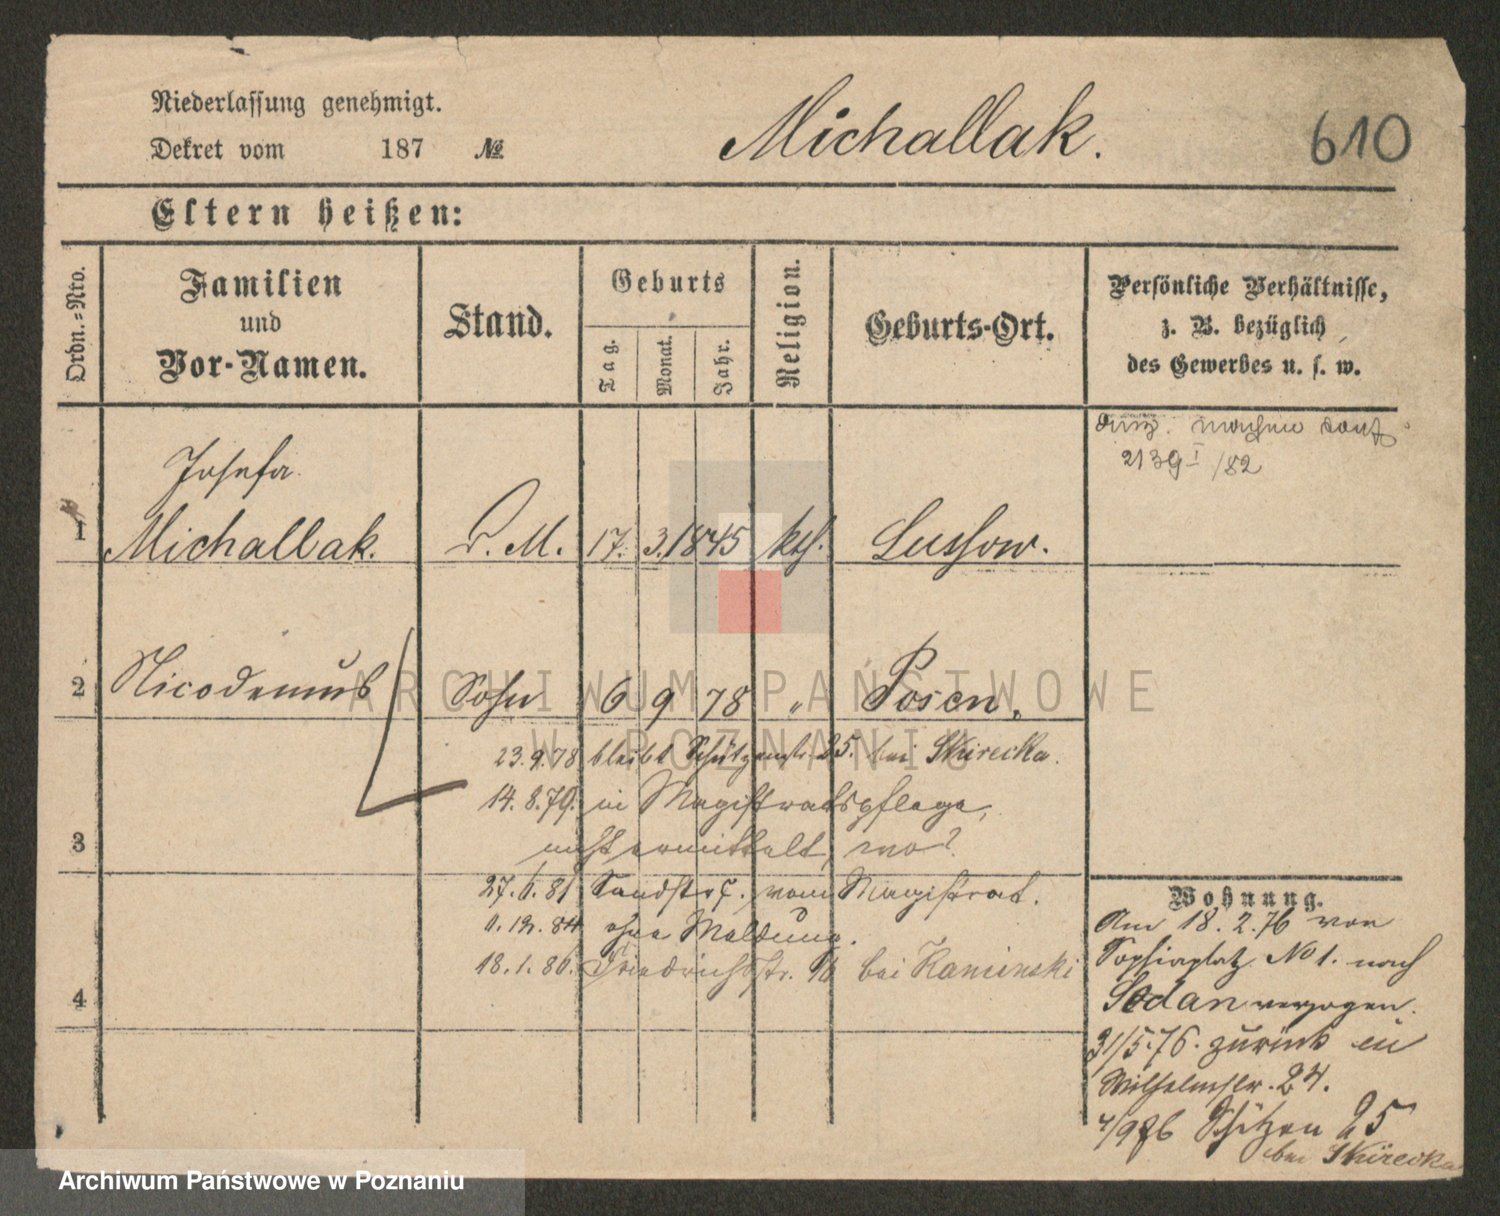 Niederlassung genehmigt.
Dekret vom 187 №
Michallak.
610
Eltern heißen:
Ordn.=Nro.
Familien
und
Vor-Namen.
Stand.
Geburts
Tag.
Monat.
Jahr.
Religion.
Geburts-Ort.
Persönliche Verhältnisse,
z. B. bezüglich
des Gewerbes u. s. w.
2139 I /82
Josefa
1 Michallak. D. M. 17. 3. 1845 kth. Lussow.
2 Nicodemus Sohn 6 9 78 " Posen.
23.9.78 bleibt Schützenstr. 25. bei Skirecka.
14.8.79. in Magistratspflege,
3
nicht ermittelt, wo?
27.6.81 Sandstr. vom Magistrat.
ohne Meldung.
18.1.86. Friedrichsstr. 16 bei Kaminski
4
Wohnung.
Am 18.2.76 von
Sophienplatz No 1. nach
Sedan verzogen.
31/5.76. zurück in
Wilhelmstr. 24.
Schützen 25
bei Skirecka
ARCHIWUM PAŃSTWOWE
W POZNANIU
Archiwum Państwowe w Poznaniu